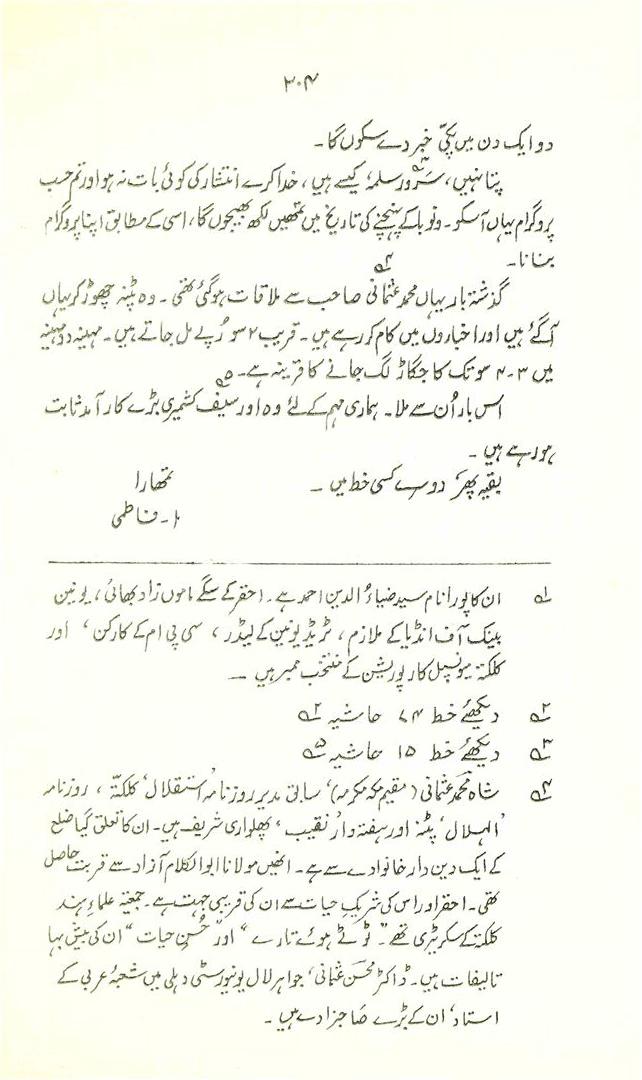 ۳۰۴
دو ایک دن میں پکّی خبر دے سکوں گا۔
پتا نہیں، سَرور سلمہٗ کیسے ہیں، خدا کرے انتشار کی کوئی بات نہ ہو اور تم حسب
پروگرام یہاں آ سکو۔ ونوبا کے پہنچنے کی تاریخ میں تمھیں لکھ بھیجوں گا، اسی کے مطابق اپنا پروگرام
بنانا۔
گذشتہ بار یہاں محمد عثمانی صاحب سے ملاقات ہوگئی تھی۔ وہ پٹنہ چھوڑ کر یہاں
آگئے ہیں اور اخباروں میں کام کر رہے ہیں۔ قریب ۲ سو رُپے مل جاتے ہیں۔ مہینہ دو مہینہ
میں ۳-۴ سو تک کا جگاڑ لگ جانے کا قرینہ ہے۔
اس بار اُن سے ملا۔ ہماری مہم کے لئے وہ اور سیف کشمیری بڑے کار آمد ثابت
ہو رہے ہیں۔
بقیہ پھر، دوسرے کسی خط میں۔ تمھارا
ا۔ فاطمی
۱؎ ان کا پورا نام سید ضیاءُ الدین احمد ہے۔ احقر کے سگے ماموں زاد بھائی، یونین
بینک آف انڈیا کے ملازم، ٹریڈ یونین کے لیڈر، سی پی ام کے کارکن، اور
کلکتہ میونسپل کارپوریشن کے منتخب ممبر ہیں۔
۲؎ دیکھئے خط ۷۴ حاشیہ ۲؎
۳؎ دیکھئے خط ۱۵ حاشیہ ۵؎
۴؎ شاہ محمد عثمانی (مقیم مکہ مکرمہ) سابق مدیر روزنامہ 'استقلال' کلکتہ، روزنامہ
'الہلال' پٹنہ اور ہفتہ وار 'نقیب'، پھلواری شریف ہیں۔ ان کا تعلق گیا ضلع
کے ایک دین دار خانوادے سے ہے۔ انھیں مولانا ابوالکلام آزاد سے قربت حاصل
تھی۔ احقر اور اس کی شریکِ حیات سے ان کی قریبی جہت ہے۔ جمعیۃ علماءِ ہند
کلکتہ کے سکریٹری تھے۔ "ٹوٹے ہوئے تارے" اور "حُسنِ حیات" ان کی بیش بہا
تالیفات ہیں۔ ڈاکٹر محسن عثمانی، جواہر لال یونیورسٹی دہلی میں شعبۂ عربی کے
استاد، ان کے بڑے صاحبزادے ہیں۔